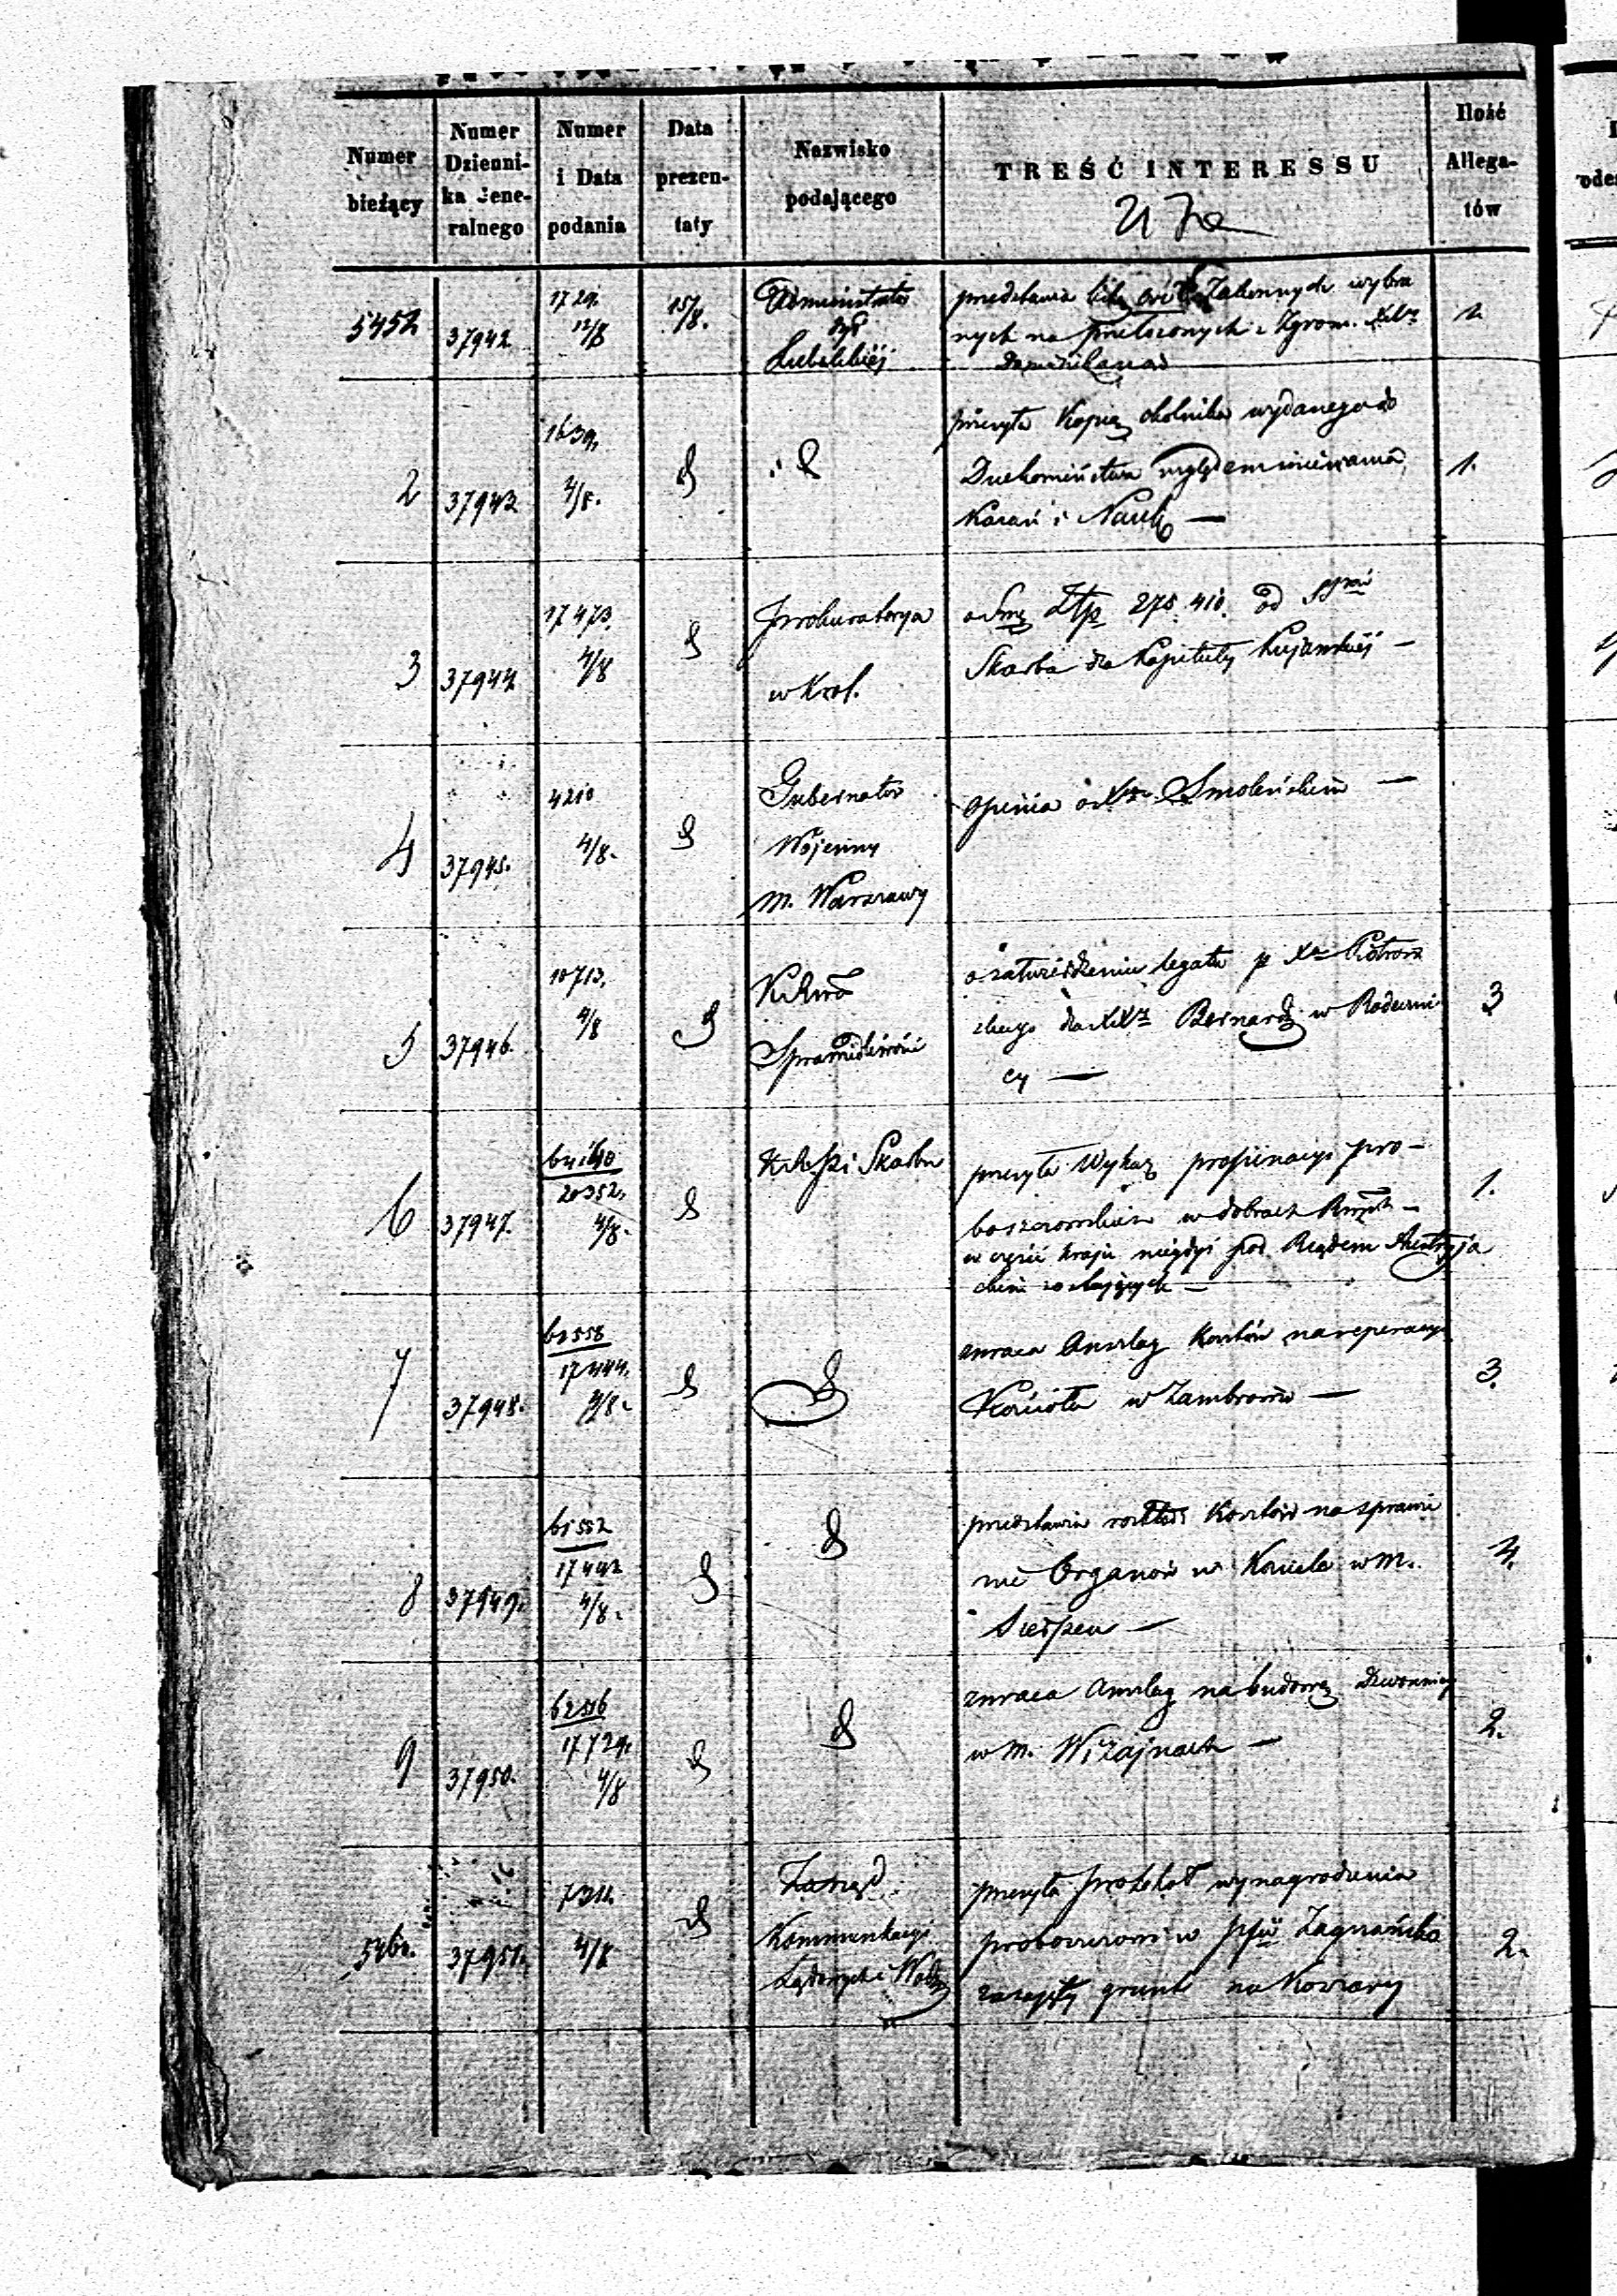 Numer bieżący | Numer Dzienni-ka Jene-ralnego | Numer i Data podania | Data prezen-taty | Nazwisko podającego | TREŚĆ INTERESSU | Ilość Allega-tów
5452 | 37942 | 1729. 12/8 | 15/8.
Administrator
Dył
Lubelskiej
przedstawia Zakonnych wybra
nych na przełożonych z Zgrom.
2 | 37943 | 1639. 4/8. | 1.
przesyła Kopią okolnika wydanego do
Duchowieństwa względem miewania
Kazań i Nauk —
3 | 37944 | 17473. 4/8
Prokuratorya
w Król.
o Smę Złp 275.410. od
Skarbu dla Kapituły Kujawskiej —
4 | 37945. | 4210 4/8.
Gubernator
Wojenny
m. Warszawy
opinia o Smoleńskim —
5 | 37946. | 10713. 4/8 | 3
Sprawiedliwości
o zatwierdzeniu legatu p
Bernard w Radecni
cy —
6 | 37947. | 20352. 4/8. | 1.
Skarbu
przesyła Wykaz propinacyi pro-
boszczowskich w dobrach
w części kraju niegdyś pod Rządem Austryja
ckim zostających —
7 | 37948. | 62558 17444. 4/8. | 3.
zwraca Anszlag Kosztów na reperacye
Kościoła w Zambrowie —
8 | 37949. | 61552 17442 4/8. | 4.
przedstawia rozkład Kosztów na sprawie
nie Organów w Kościele w m.
Sierpcu —
9 | 37950. | 17729. 4/8 | 2.
zwraca Anszlag na budowę Dzwonnicy
w m. Wiżajnach —
5460. | 37951. | 4/8 | 2.
Zarząd
Kommunikacyi
Lądowych i Wodn
przesyła protokół wynagrodzenia
proboszczowi w Zagnańsko
zazajęty grunt na Koszary